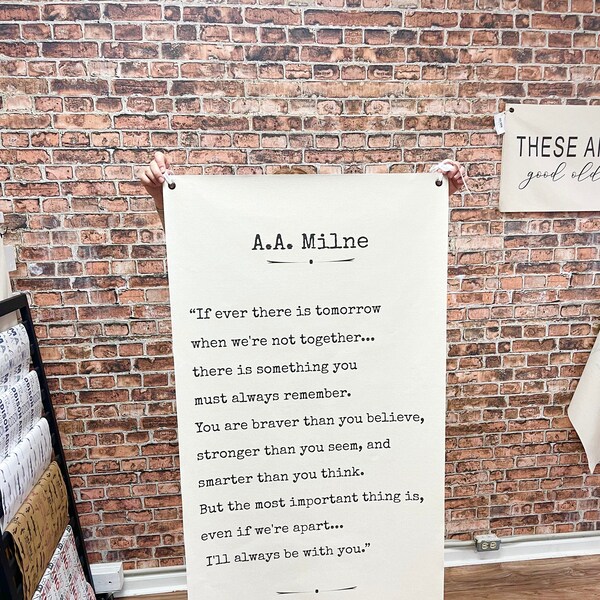 A.A. Milne
“If ever there is tomorrow
when we're not together...
there is something you
must always remember.
You are braver than you believe,
stronger than you seem, and
smarter than you think.
But the most important thing is,
even if we're apart...
I'll always be with you.”
THESE A
good old